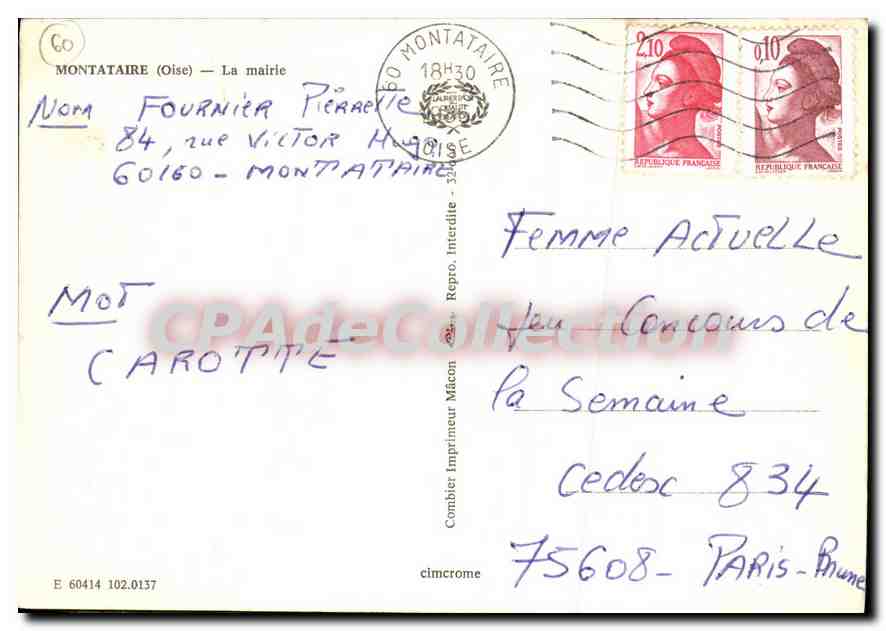 60
MONTATAIRE (Oise) — La mairie
Nom FOURNIER Pierrette
84, rue VICTOR Hugo
60160 - MONTATAIRE
MOT
CAROTTE
60 MONTATAIRE
18H30
OISE
2,10
POSTES
REPUBLIQUE FRANÇAISE
0,10
POSTES
REPUBLIQUE FRANÇAISE
Femme Actuelle
Jeu Concours de
la Semaine
Cedex 834
75608 - PARIS - Brune
Combier Imprimeur Mâcon Repro. Interdite
CPAdeCollection
E 60414 102.0137
cimcrome